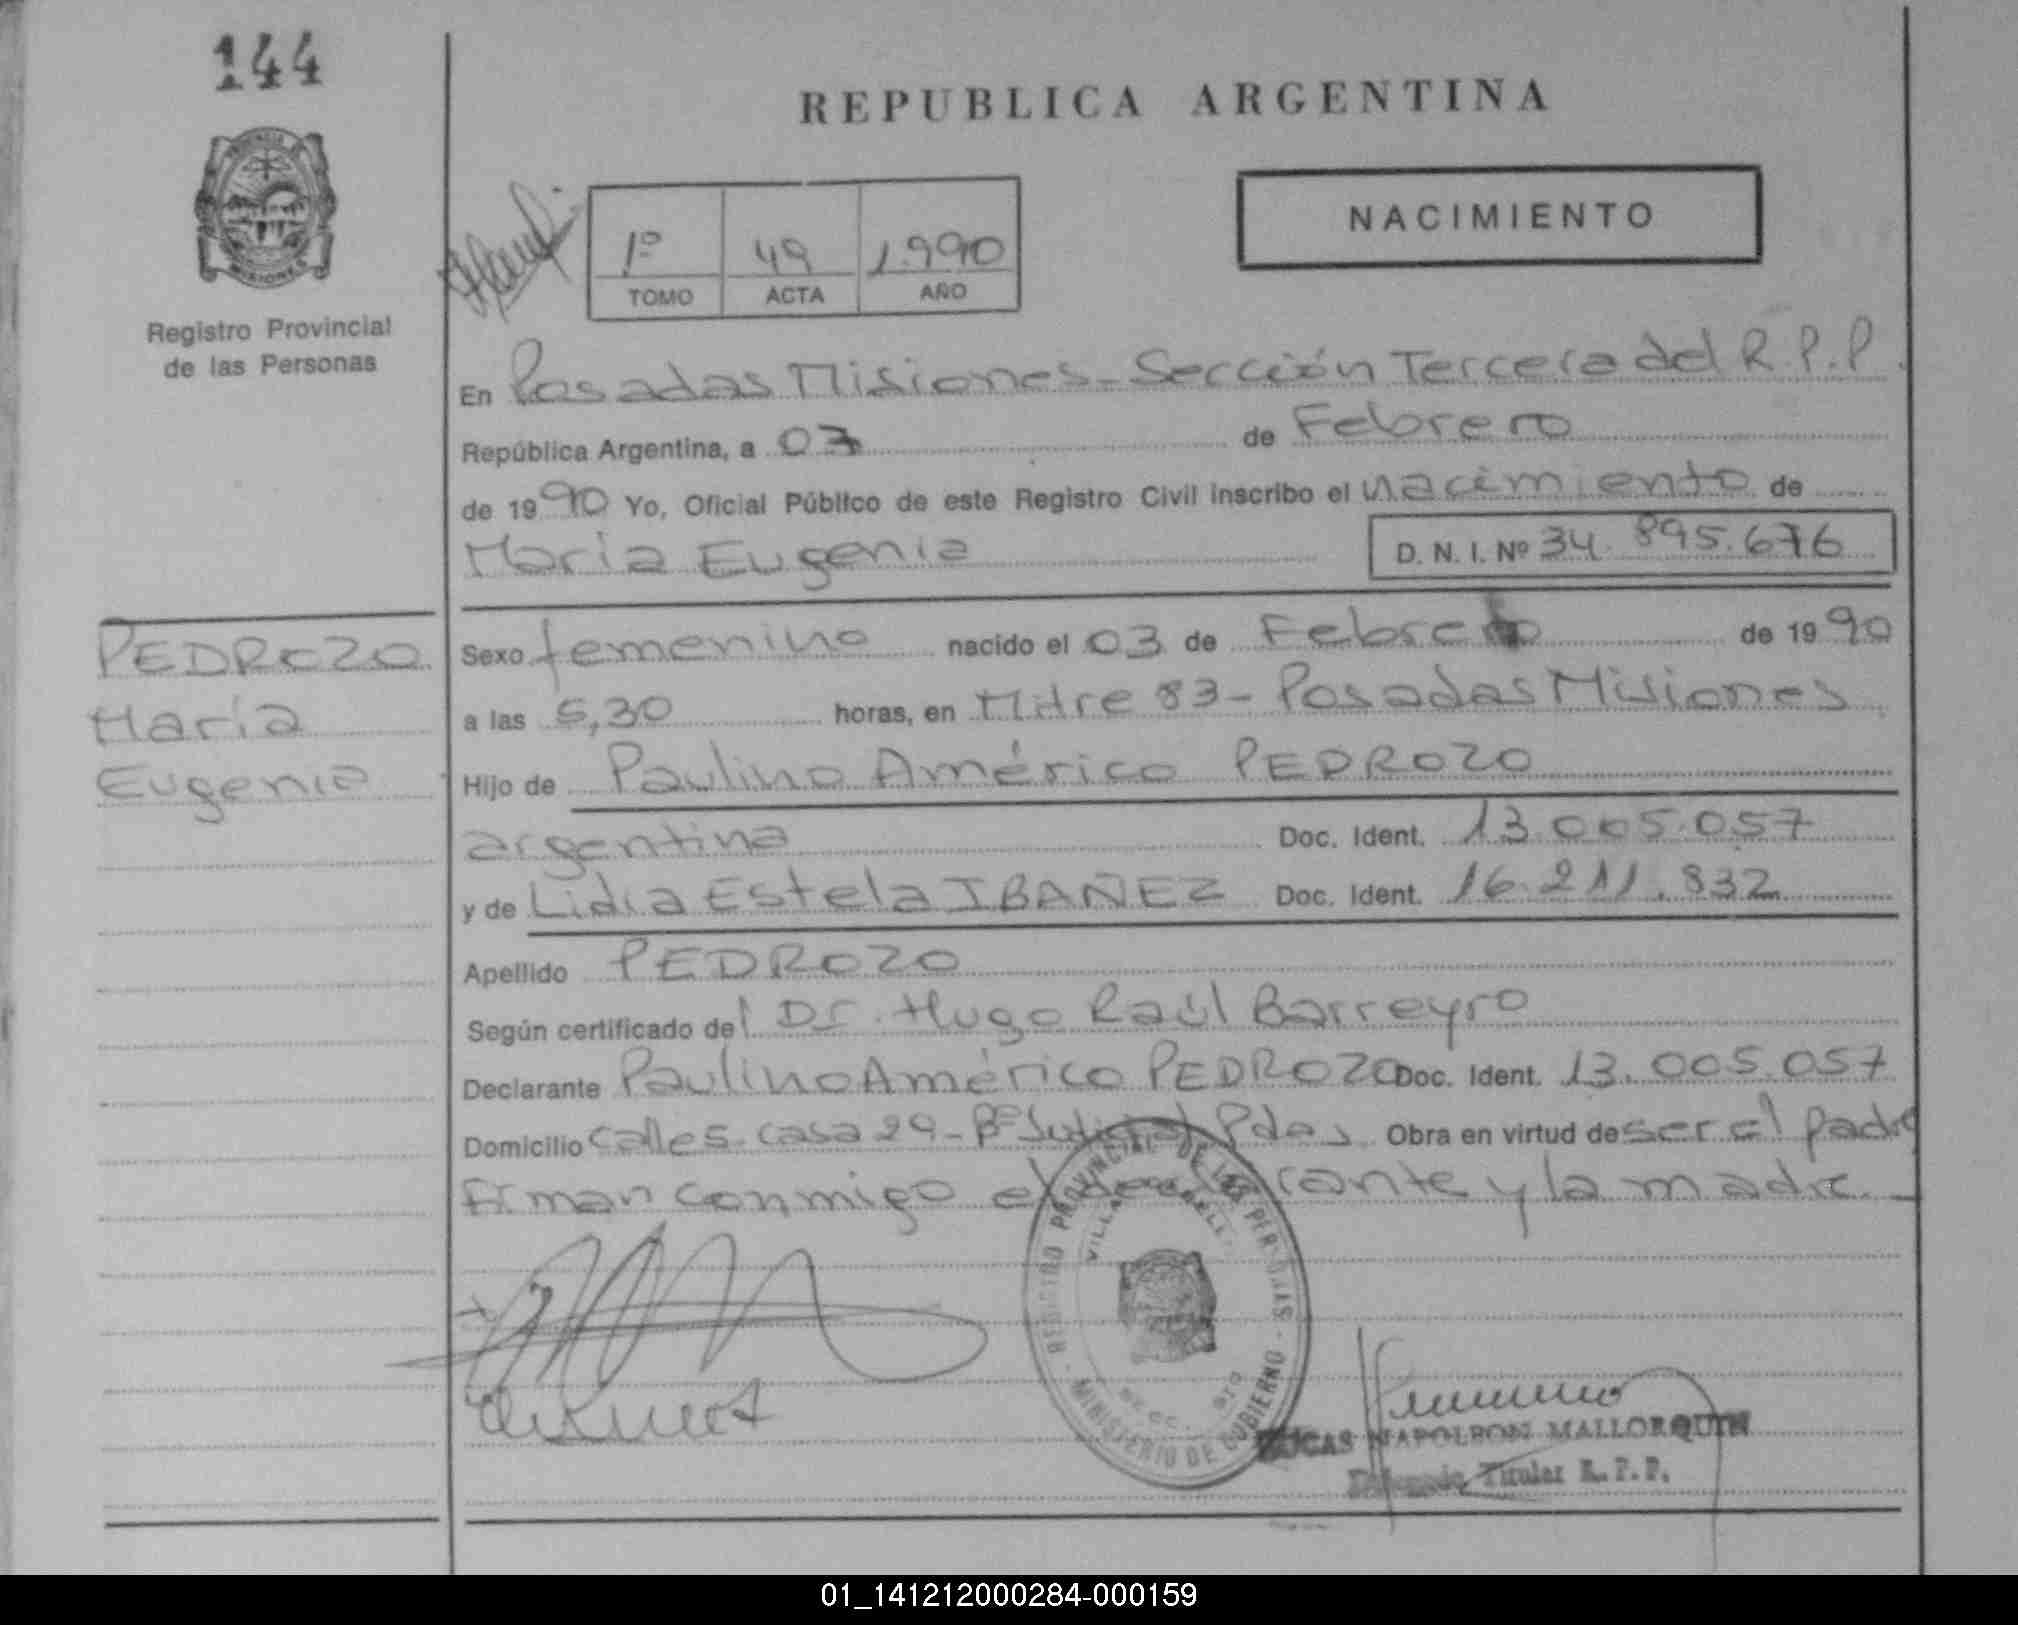 144
REPUBLICA ARGENTINA
NACIMIENTO
1º 49 1990
TOMO ACTA AÑO
MISIONES
Registro Provincial
de las Personas
En Posadas Misiones - Sección Tercera del R.P.P.
República Argentina, a 03 de Febrero
de 1990 Yo, Oficial Público de este Registro Civil inscribo el nacimiento de
María Eugenia D. N. I. Nº 34.895.676
PEDROZO
María
Eugenia
Sexo femenino nacido el 03 de Febrero de 1990
a las 5,30 horas, en Mitre 83 - Posadas Misiones
Hijo de Paulino Américo PEDROZO
argentina Doc. Ident. 13.005.057
y de Lidia Estela IBAÑEZ Doc. Ident. 16.211.832
Apellido PEDROZO
Según certificado del Dr. Hugo Raúl Barreyro
Declarante Paulino Américo PEDROZO Doc. Ident. 13.005.057
Domicilio calle 5 - casa 29 - Bº Pdas Obra en virtud de ser el padre
firman conmigo el declarante y la madre. -
REGISTRO PROVINCIAL DE LAS PERSONAS
MINISTERIO DE GOBIERNO
LUCAS NAPOLEON MALLORQUIN
Titular R.P.P.
01_141212000284-000159